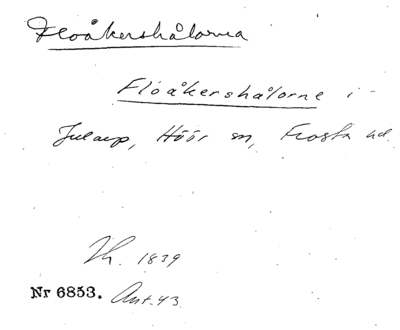 Floåkershålorna
Floåkershålorne i
Julaup, Höör sn, Frosta hd
1879
Nr 6853. Ant. 43